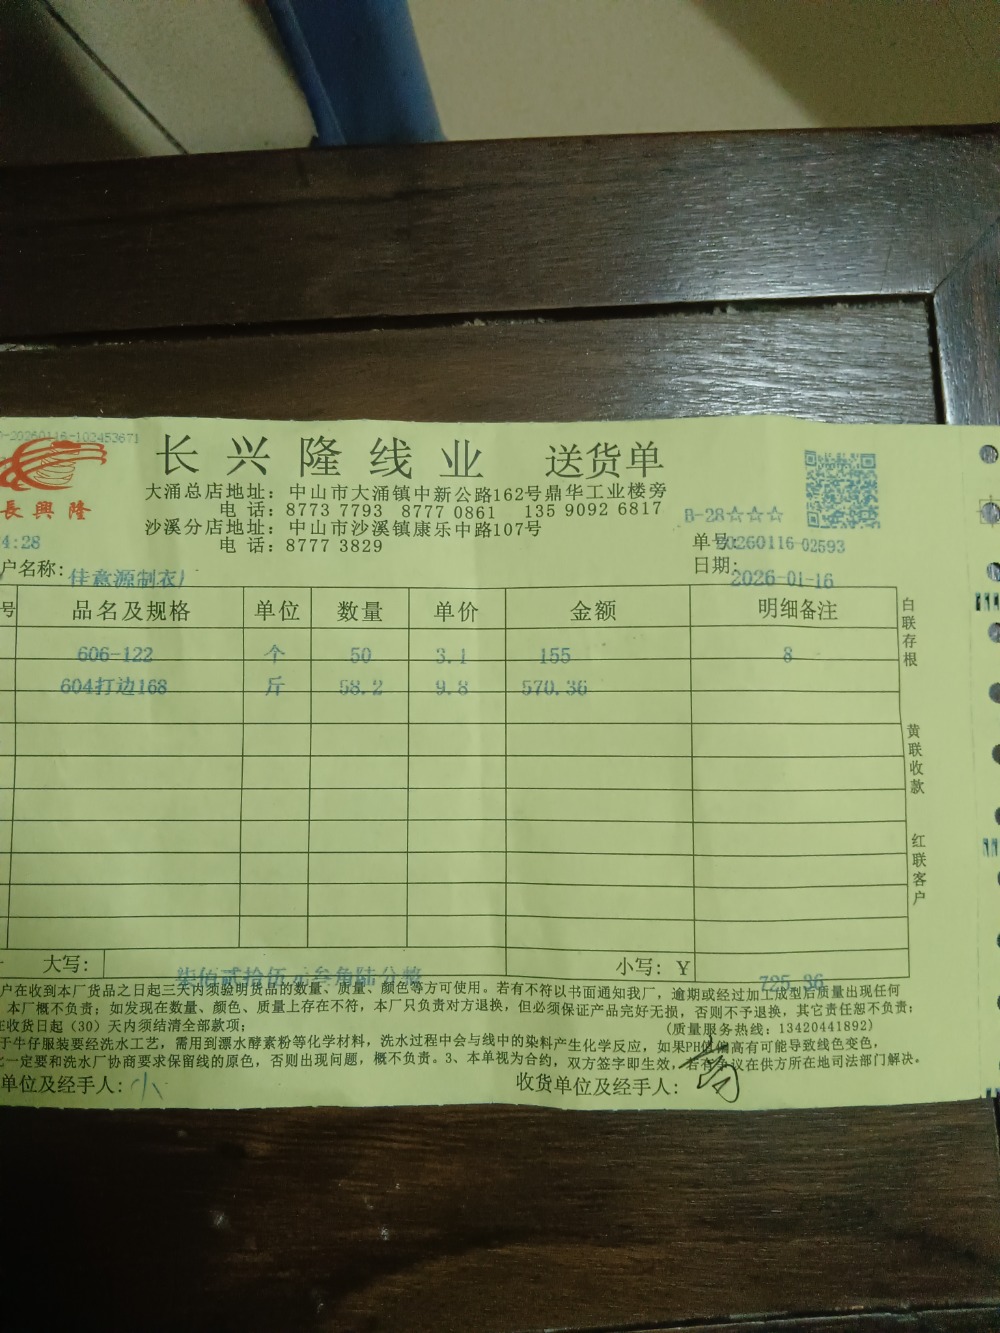 -20260116-102453671
長興隆
长兴隆线业 送货单
大涌总店地址：中山市大涌镇中新公路162号鼎华工业楼旁
电 话：8773 7793 8777 0861 135 9092 6817
沙溪分店地址：中山市沙溪镇康乐中路107号
电 话：8777 3829
B-28☆☆☆
4:28
单号:20260116-02593
户名称: 佳意源制衣厂
日期: 2026-01-16
号 品名及规格 单位 数量 单价 金额 明细备注
606-122 个 50 3.1 155 8
604打边168 斤 58.2 9.8 570.36
白联存根
黄联收款
红联客户
大写: 柒佰贰拾伍元叁角陆分整 小写: Y 725.36
户在收到本厂货品之日起三天内须验明货品的数量、质量、颜色等方可使用。若有不符以书面通知我厂，逾期或经过加工成型后质量出现任何
本厂概不负责；如发现在数量、颜色、质量上存在不符，本厂只负责对方退换，但必须保证产品完好无损，否则不予退换，其它责任恕不负责；
在收货日起（30）天内须结清全部款项； (质量服务热线：13420441892)
于牛仔服装要经洗水工艺，需用到漂水酵素粉等化学材料，洗水过程中会与线中的染料产生化学反应，如果PH值偏高有可能导致线色变色，
一定要和洗水厂协商要求保留线的原色，否则出现问题，概不负责。3、本单视为合约，双方签字即生效，若有争议在供方所在地司法部门解决。
单位及经手人: 小 收货单位及经手人: